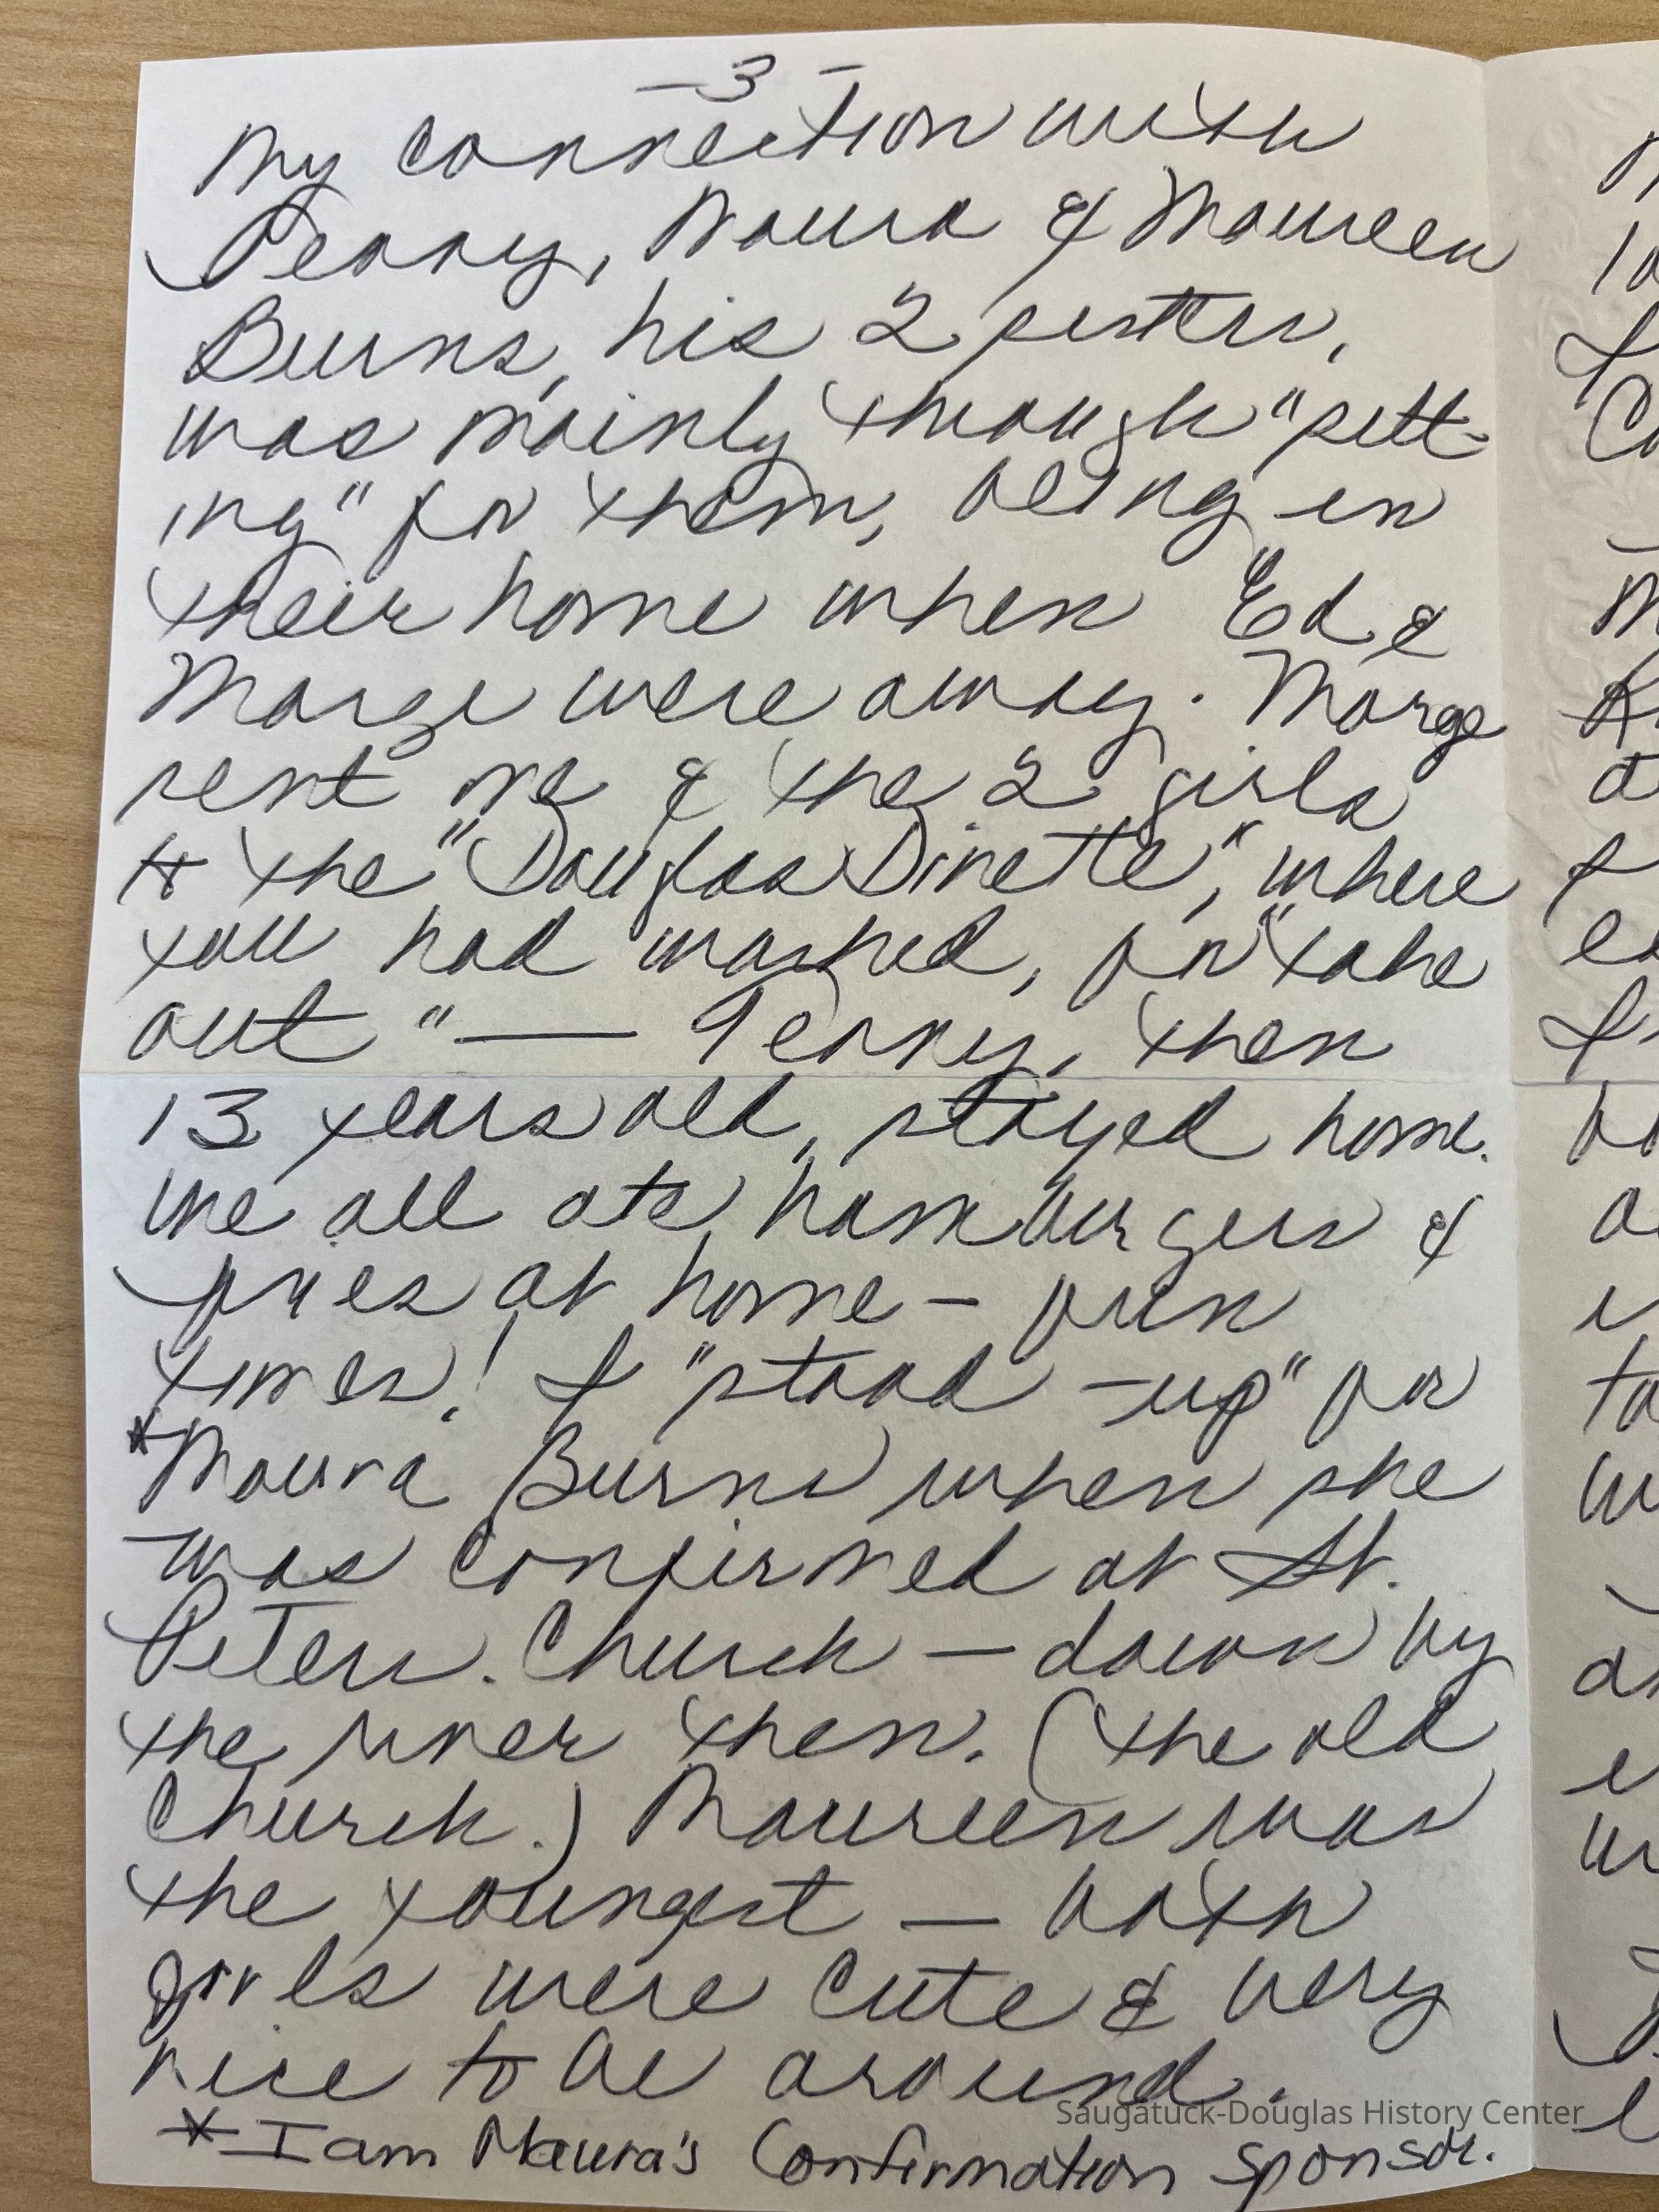 -3-
My connection with
Perry, Maura & Maureen
Burns, his 2 sisters,
was mainly through "sitt-
ing" for them, being in
their home when Ed &
Marge were away. Marge
sent me & the 2 girls
to the "Douglas Dinette", where
you had worked, for "take
out" — Perry, then
13 years old, stayed home.
We all ate hamburgers &
fries at home - fun
times! I "stood-up" for
*Maura Burns when she
was confirmed at St.
Peters. Church — down by
the river then. (the old
Church.) Maureen was
the youngest — both
girls were cute & very
nice to be around.
* I am Maura's Confirmation Sponsor.
Saugatuck-Douglas History Center